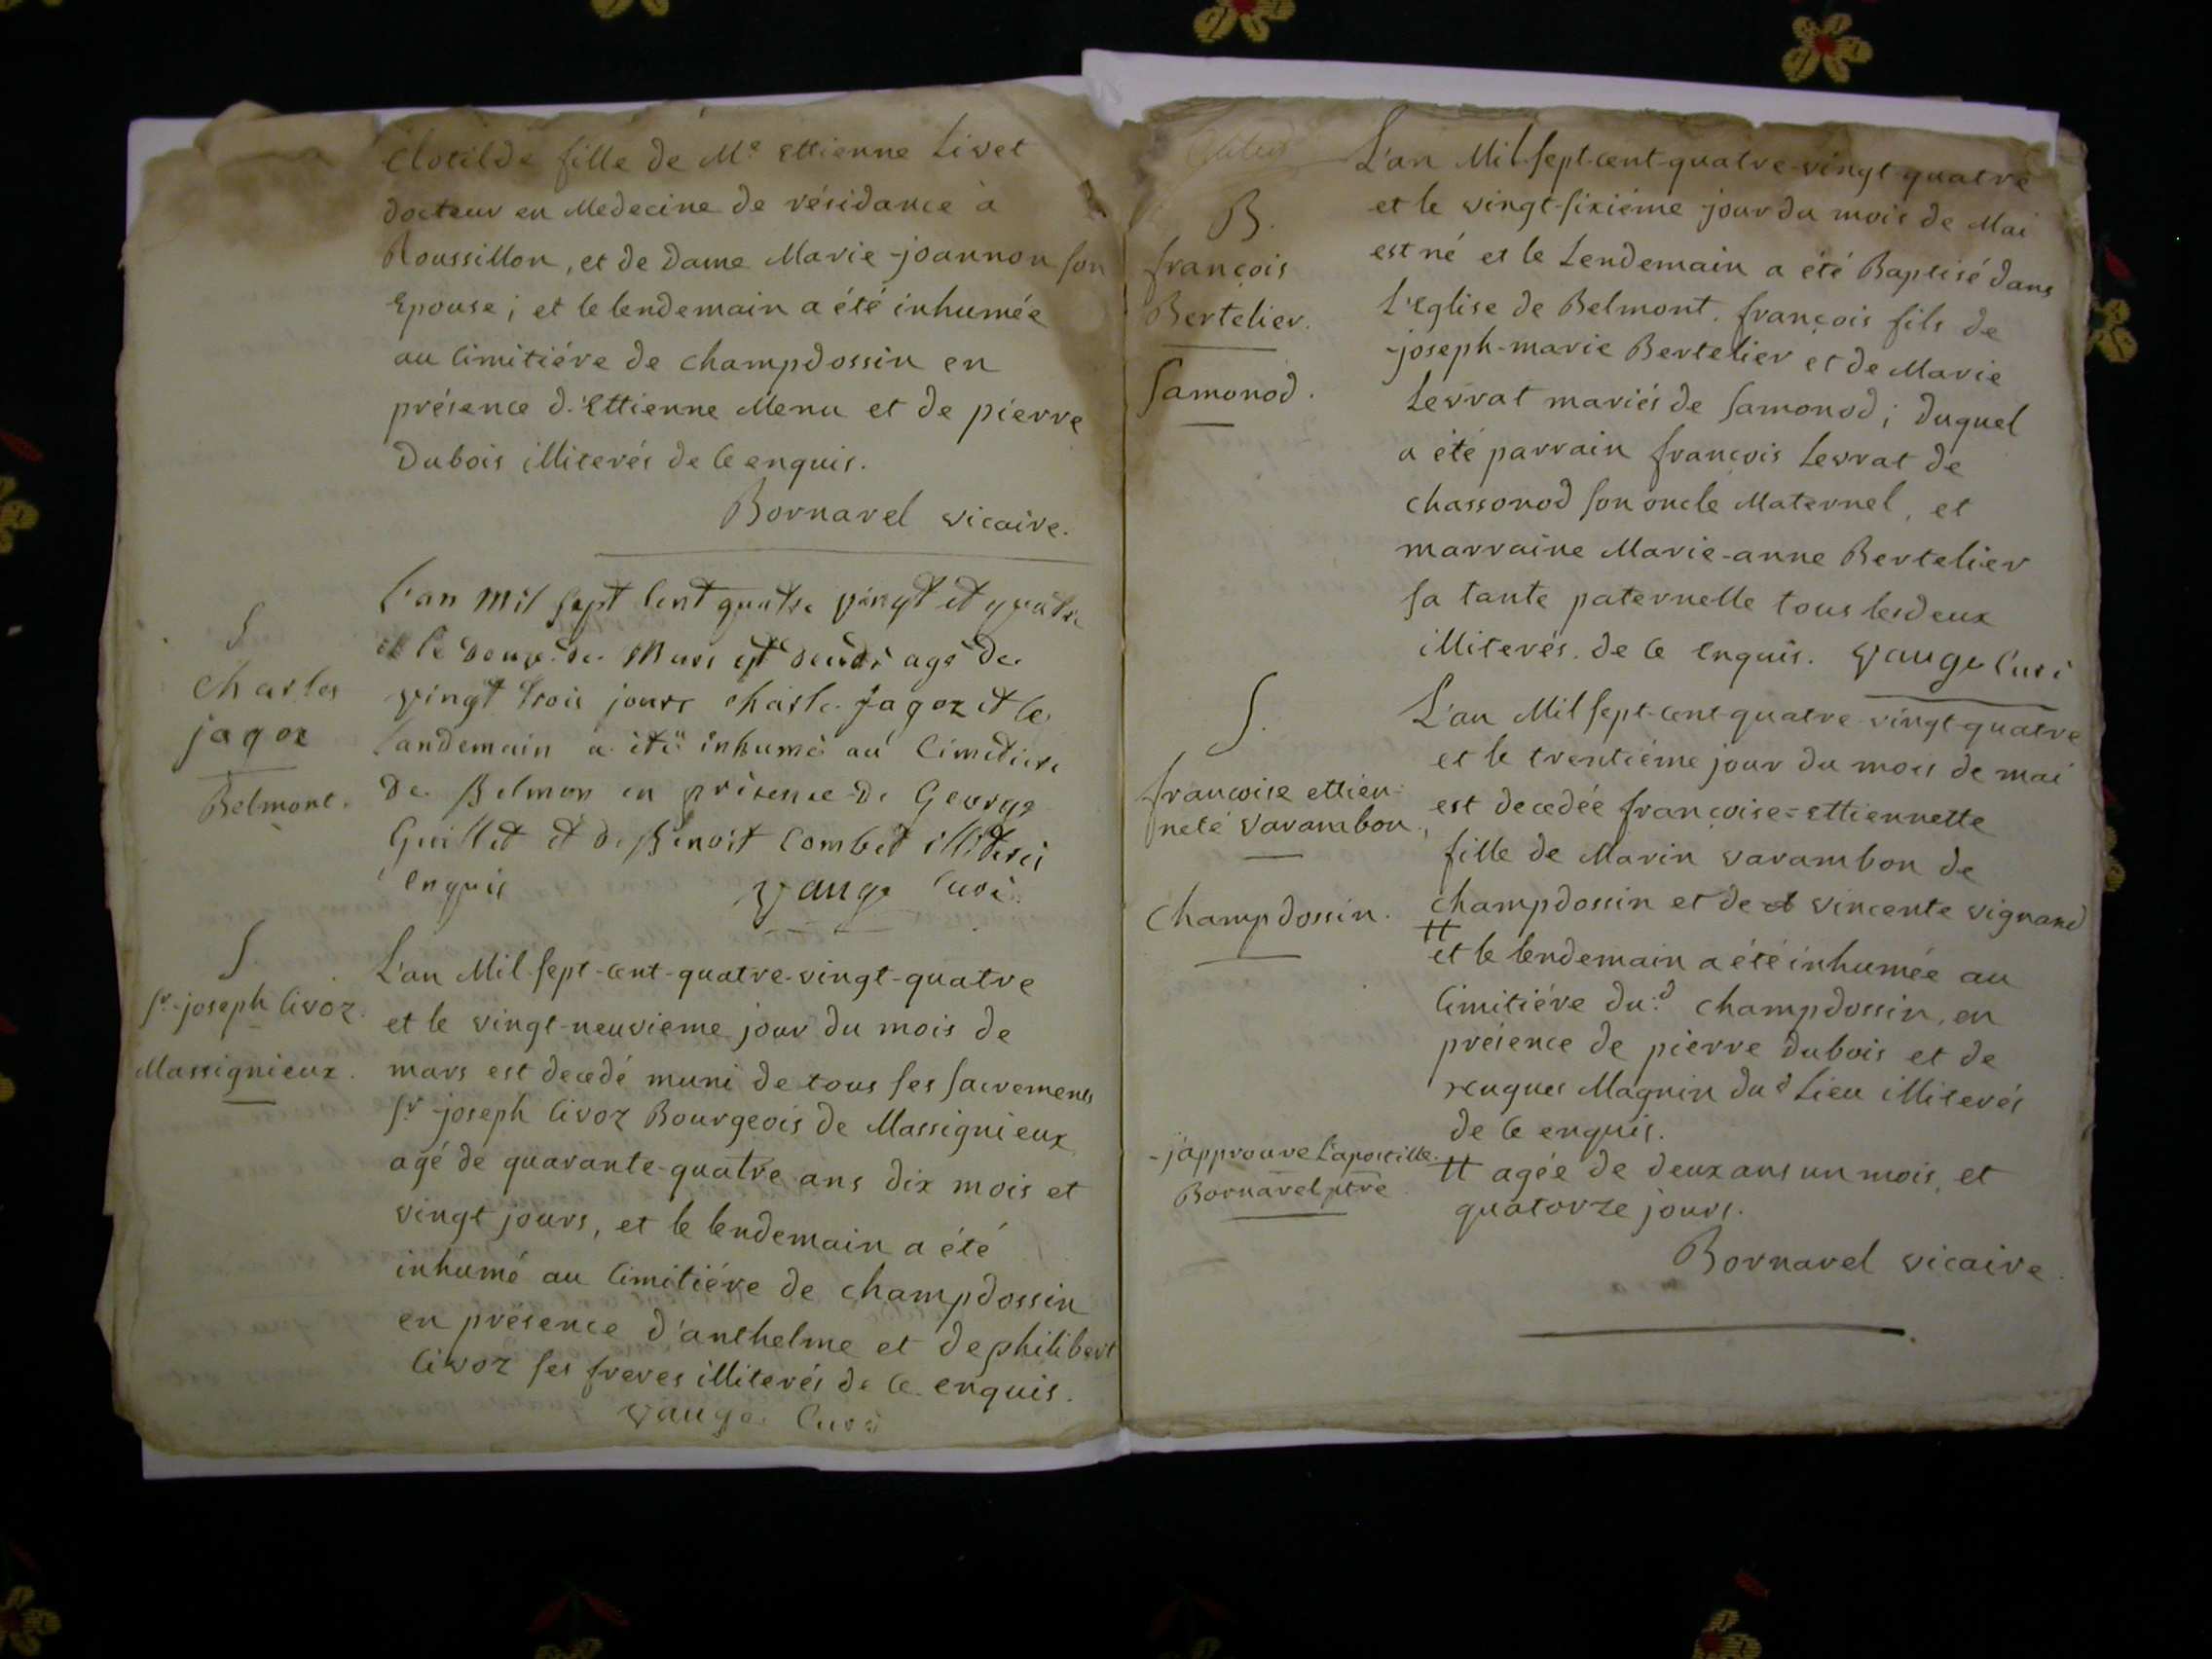 Clotilde fille de Me Ettienne Livet
docteur en Medecine de résidance à
Roussillon, et de dame Marie-joannon son
Epouse; et le lendemain a été inhumée
au Cimitiére de Champdossin en
présence d'Ettienne Menu et de piérre
Dubois illiterés de Ce enquis.
Bornarel vicaire.
S
Charles
jagoz
Belmont.
L'an mil sept Cent quatre vingt et quatre
et le douze de Mars est décédé agé de
vingt trois jours Charle jagoz et le
landemain a été inhumé au Cimetiere
de Belmon en présence de George
Guillet et de Benoit Combet illiterés
enquis vauge Curé
S.
Sr. joseph Civoz.
Massignieux.
L'an Mil-sept-cent-quatre-vingt-quatre
et le vingt-neuvieme jour du mois de
mars est decedé muni de tous ses sacrements
Sr joseph Civoz Bourgeois de Massignieux
agé de quarante-quatre ans dix mois et
vingt jours, et le lendemain a été
inhumé au Cimitiére de Champdossin
en présence d'anthelme et de philibert
Civoz ses freres illiterés de Ce enquis.
vauge Curé
B.
françois
Bertelier.
Samonod.
L'an Mil-sept-cent-quatre-vingt quatre
et le vingt-sixiéme jour du mois de Mai
est né et le Lendemain a été Baptisé dans
L'Eglise de Belmont. françois fils de
joseph-marie Bertelier et de Marie
Levrat mariés de Samonod; duquel
a été parrain françois Levrat de
chassonod son oncle Maternel, et
marraine Marie-anne Bertelier
sa tante paternelle tous lesdeux
illiterés de Ce Enquis. vauge Curé
S.
francoise ettien-
nete varambon.
Champdossin.
L'an Mil sept-cent quatre-vingt-quatre
et le trentiéme jour du mois de mai
est decedée françoise=Ettiennette
fille de Marin varambon de
champdossin et de vincente vignand
tt
et le lendemain a été inhumée au
Cimitiére du:d Champdossin, en
présence de piérre Dubois et de
Magnin dud Lieu illiterés
de Ce enquis.
- j'approuve L'apostille.
Bornarel ptre
tt agée de deux ans un mois, et
quatorze jours.
Bornarel vicaire.